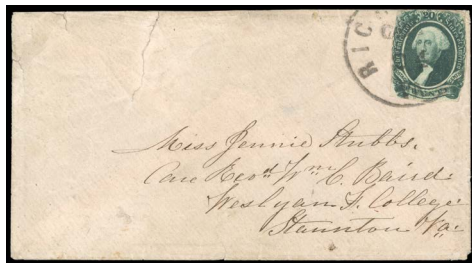 RIC
Miss Jennie Stubbs.
Care Revd Wm C. Baird
Weslyan F. College
Staunton Va.